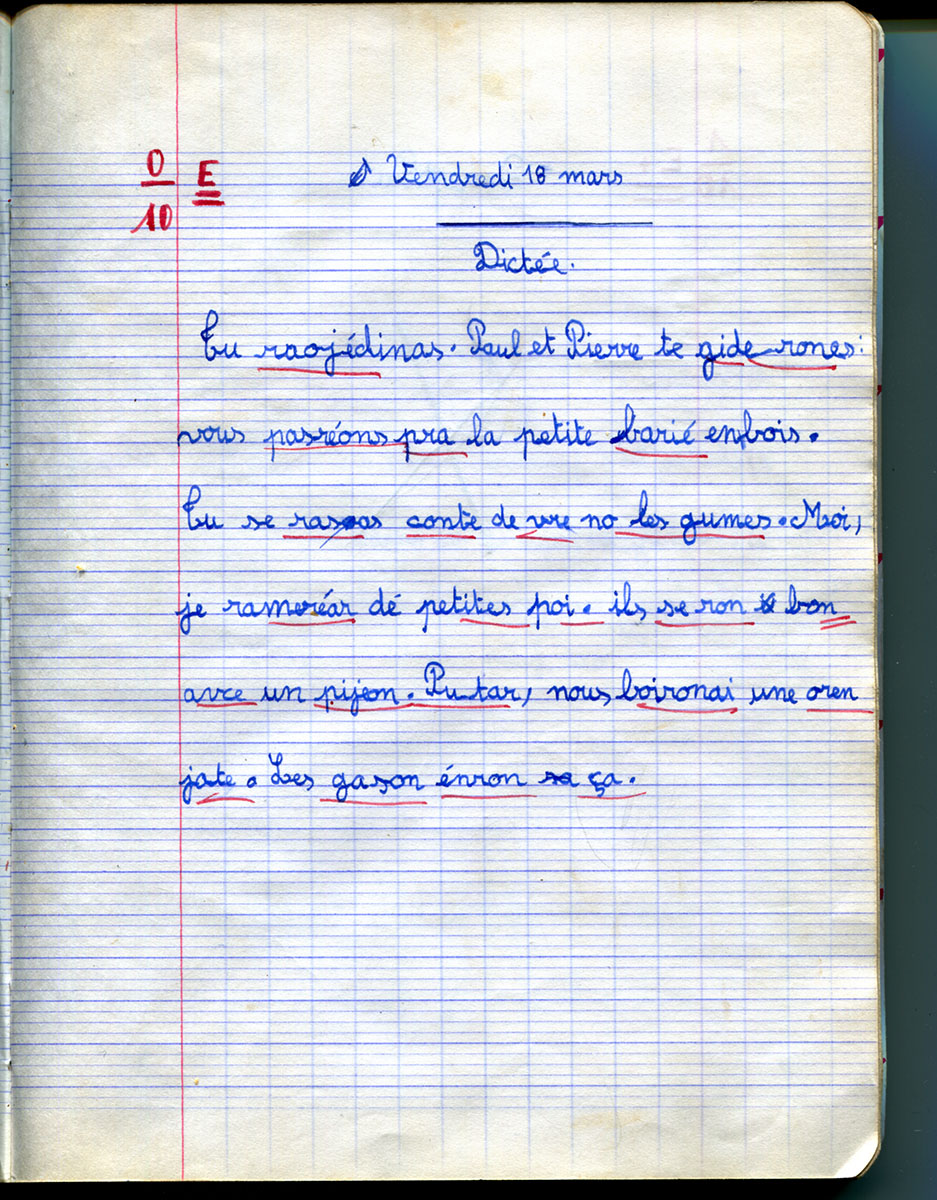 0 E Vendredi 18 mars
10
Dictée.
Tu raojédinas. Paul et Pierre te gide rones:
vous pasréons pra la petite barié enbois.
Tu se raspas conte de vre no les gumes. Moi,
je rameréar dé petites poi. ils se ron bon
avce un pijeon. Pu tar, nous boironai une oren
jate. Les gason énron ça.